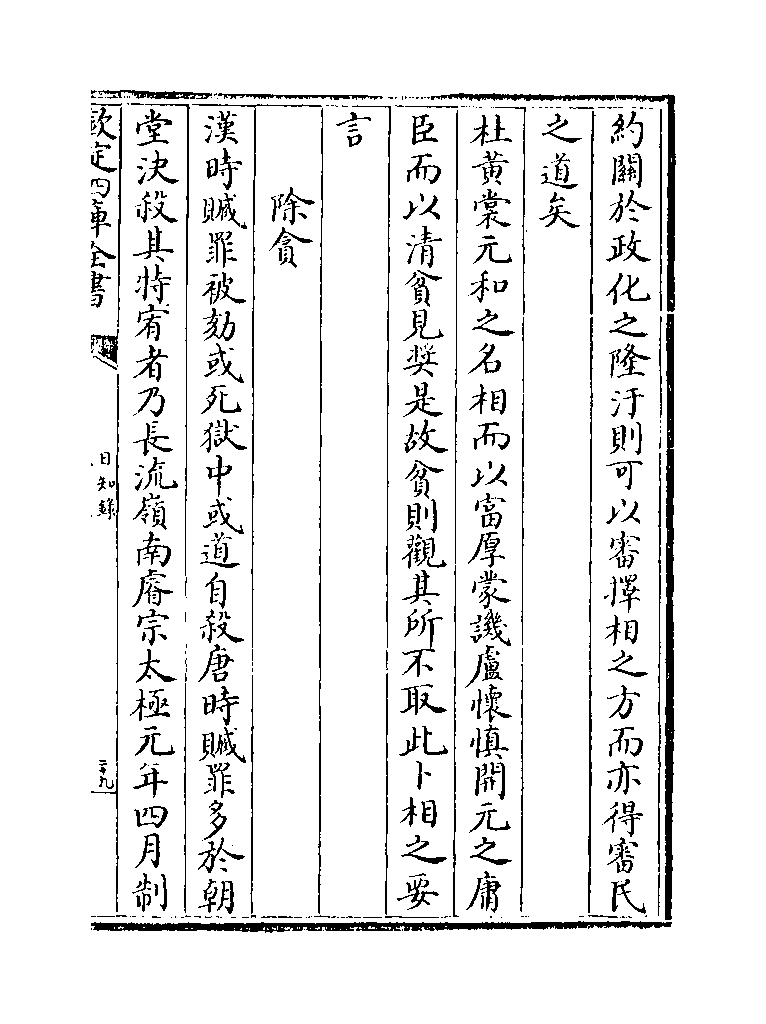 約關於政化之隆汙則可以審擇相之方而亦得審民
之道矣
杜黄裳元和之名相而以富厚蒙譏盧懷慎開元之庸
臣而以清貧見奬是故貧則觀其所不取此卜相之要
言
除貪
漢時贓罪被劾或死獄中或道自殺唐時贓罪多於朝
堂決殺其特宥者乃長流嶺南睿宗太極元年四月制
欽定四庫全書
日知録
二十九